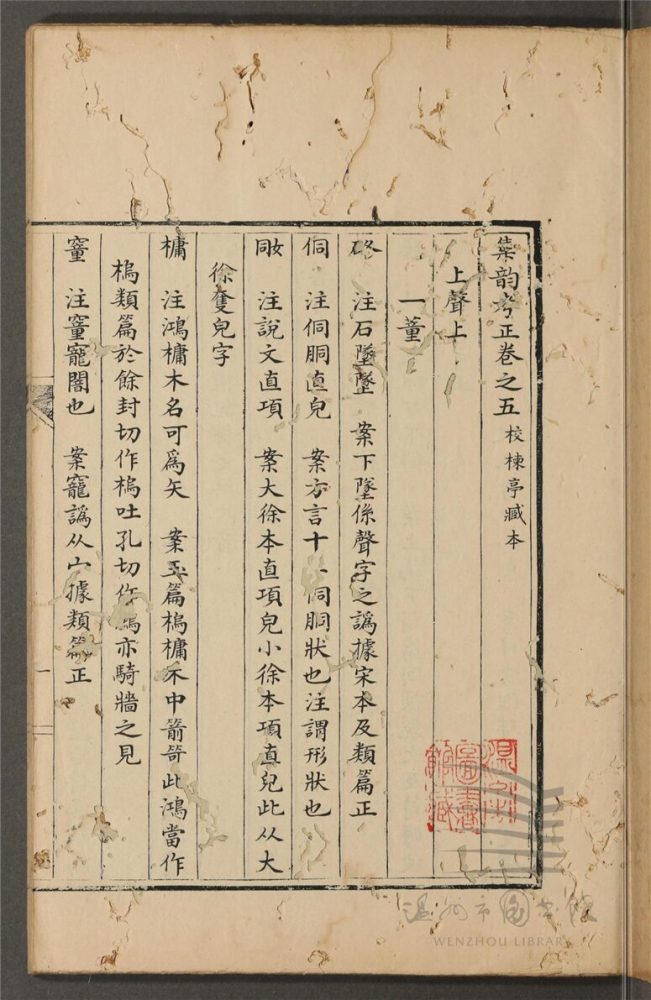 集韵考正卷之五 校楝亭臧本
上聲上
一董
硿 注石墜墜 案下墜係聲字之譌據宋本及類篇正
侗 注侗胴直皃 案方言十 侗胴狀也注謂形狀也
注說文直項 案大徐本直項皃小徐本項直皃此从大
徐隻皃字
槦 注鴻槦木名可爲矢 案玉篇槝槦木中箭笴此鴻當作
槝類篇於餘封切作槝吐孔切作鴻亦騎牆之見
䆹 注䆹竉闇也 案竉譌从宀據類篇正
一
温州市圖書館藏
温州市圖書館
WENZHOU LIBRARY